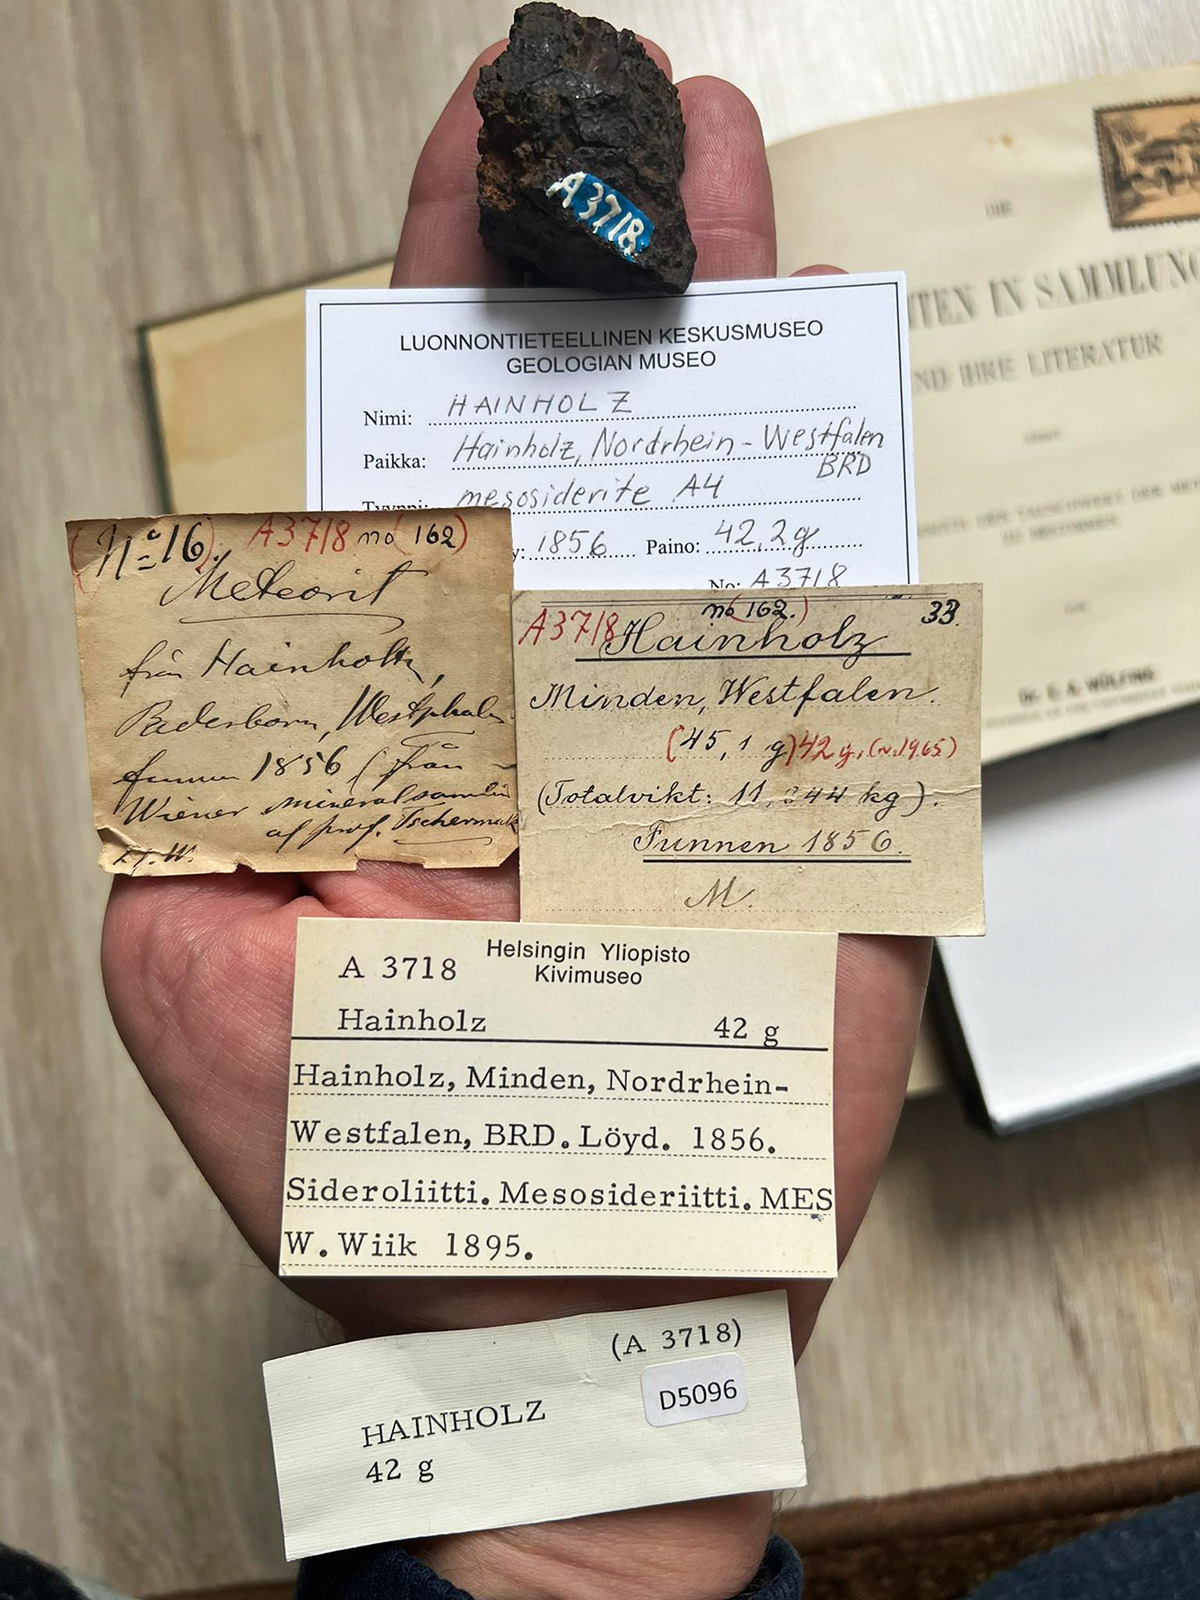 A3718
LUONNONTIETEELLINEN KESKUSMUSEO
GEOLOGIAN MUSEO
Nimi: HAINHOLZ
Paikka: Hainholz, Nordrhein-Westfalen
BRD
Tyyppi: mesosiderite A4
y: 1856 Paino: 42,2g
No: A3718
(No 16). A3718 no (162)
Meteorit
från Hainholtz,
Paderborn, Westphalen
funnen 1856 (från
Wiener mineralsamlin
af prof. Tschermak
A3718 no (162.) 33.
Hainholz
Minden, Westfalen.
(45,1 g) 42 g, (v.1965)
(Totalvikt: 11,344 kg).
Funnen 1856.
M.
A 3718 Helsingin Yliopisto
Kivimuseo
Hainholz 42 g
Hainholz, Minden, Nordrhein-
Westfalen, BRD. Löyd. 1856.
Sideroliitti. Mesosideriitti. MES
W. Wiik 1895.
(A 3718)
D5096
HAINHOLZ
42 g
DIE
TEN IN SAMMLUNG
ND IHRE LITERATUR
Dr. E. A. WÜLFING